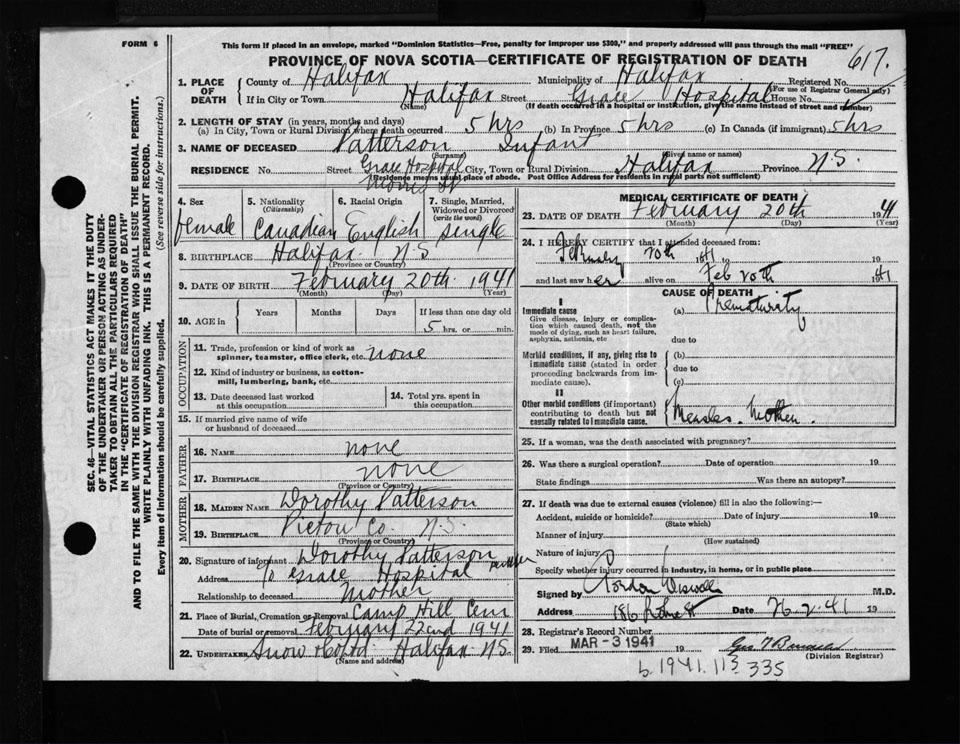 FORM 6
This form if placed in an envelope, marked "Dominion Statistics—Free, penalty for improper use $300," and properly addressed will pass through the mail "FREE"
PROVINCE OF NOVA SCOTIA—CERTIFICATE OF REGISTRATION OF DEATH
617.
1. PLACE OF DEATH County of Halifax Municipality of Halifax Registered No.
(For use of Registrar General only)
If in City or Town Halifax Street Grace Hospital House No.
(Name) (If death occurred in a hospital or institution, give the name instead of street and number)
2. LENGTH OF STAY (in years, months and days)
(a) In City, Town or Rural Division where death occurred 5 hrs (b) In Province 5 hrs (c) In Canada (if immigrant) 5 hrs
3. NAME OF DECEASED Patterson Infant
(Surname) (Given name or names)
RESIDENCE No. Street Grace Hospital Morris St City, Town or Rural Division Halifax Province N.S.
(Residence means usual place of abode. Post Office Address for residents in rural parts not sufficient)
4. Sex 5. Nationality (Citizenship) 6. Racial Origin 7. Single, Married, Widowed or Divorced (write the word)
female Canadian English single
8. BIRTHPLACE Halifax N.S
(Province or Country)
9. DATE OF BIRTH February 20th 1941
(Month) (Day) (Year)
10. AGE in Years Months Days If less than one day old
5 hrs. or min.
OCCUPATION
11. Trade, profession or kind of work as spinner, teamster, office clerk, etc. none
12. Kind of industry or business, as cotton-mill, lumbering, bank, etc.
13. Date deceased last worked at this occupation 14. Total yrs. spent in this occupation
15. If married give name of wife or husband of deceased
FATHER
16. NAME none
17. BIRTHPLACE none
(Province or Country)
MOTHER
18. MAIDEN NAME Dorothy Patterson
19. BIRTHPLACE Pictou Co. N.S.
(Province or Country)
20. Signature of informant Dorothy Patterson
Address c/o Grace Hospital
Relationship to deceased Mother
21. Place of Burial, Cremation or Removal Camp Hill Cem
Date of burial or removal February 22nd 1941
22. UNDERTAKER Snow & Co Ltd Halifax N.S.
(Name and address)
MEDICAL CERTIFICATE OF DEATH
23. DATE OF DEATH February 20th 1941
(Month) (Day) (Year)
24. I HEREBY CERTIFY that I attended deceased from:
February 20th 1941 to 19
and last saw her alive on Feb 20th 1941
CAUSE OF DEATH
I
Immediate cause (a) Prematurity
Give disease, injury or complication which caused death, not the mode of dying, such as heart failure, asphyxia, asthenia, etc
due to
Morbid conditions, if any, giving rise to immediate cause (stated in order proceeding backwards from immediate cause).
(b)
due to
(c)
II
Other morbid conditions (if important) contributing to death but not causally related to immediate cause.
Measles. Mother.
25. If a woman, was the death associated with pregnancy?
26. Was there a surgical operation? Date of operation 19
State findings Was there an autopsy?
27. If death was due to external causes (violence) fill in also the following:—
Accident, suicide or homicide? Date of injury 19
(State which)
Manner of injury
(How sustained)
Nature of injury
Specify whether injury occurred in industry, in home, or in public place
Signed by Gordon Wiswell M.D.
Address 186 Date 26.2.41 19
28. Registrar's Record Number
29. Filed MAR - 3 1941 19
(Division Registrar)
b. 1941. 113 335
SEC. 46—VITAL STATISTICS ACT MAKES IT THE DUTY
OF THE UNDERTAKER OR PERSON ACTING AS UNDER-
TAKER TO OBTAIN ALL THE PARTICULARS REQUIRED
IN THE "CERTIFICATE OF REGISTRATION OF DEATH"
AND TO FILE THE SAME WITH THE DIVISION REGISTRAR WHO SHALL ISSUE THE BURIAL PERMIT.
WRITE PLAINLY WITH UNFADING INK. THIS IS A PERMANENT RECORD.
Every item of information should be carefully supplied. (See reverse side for instructions.)